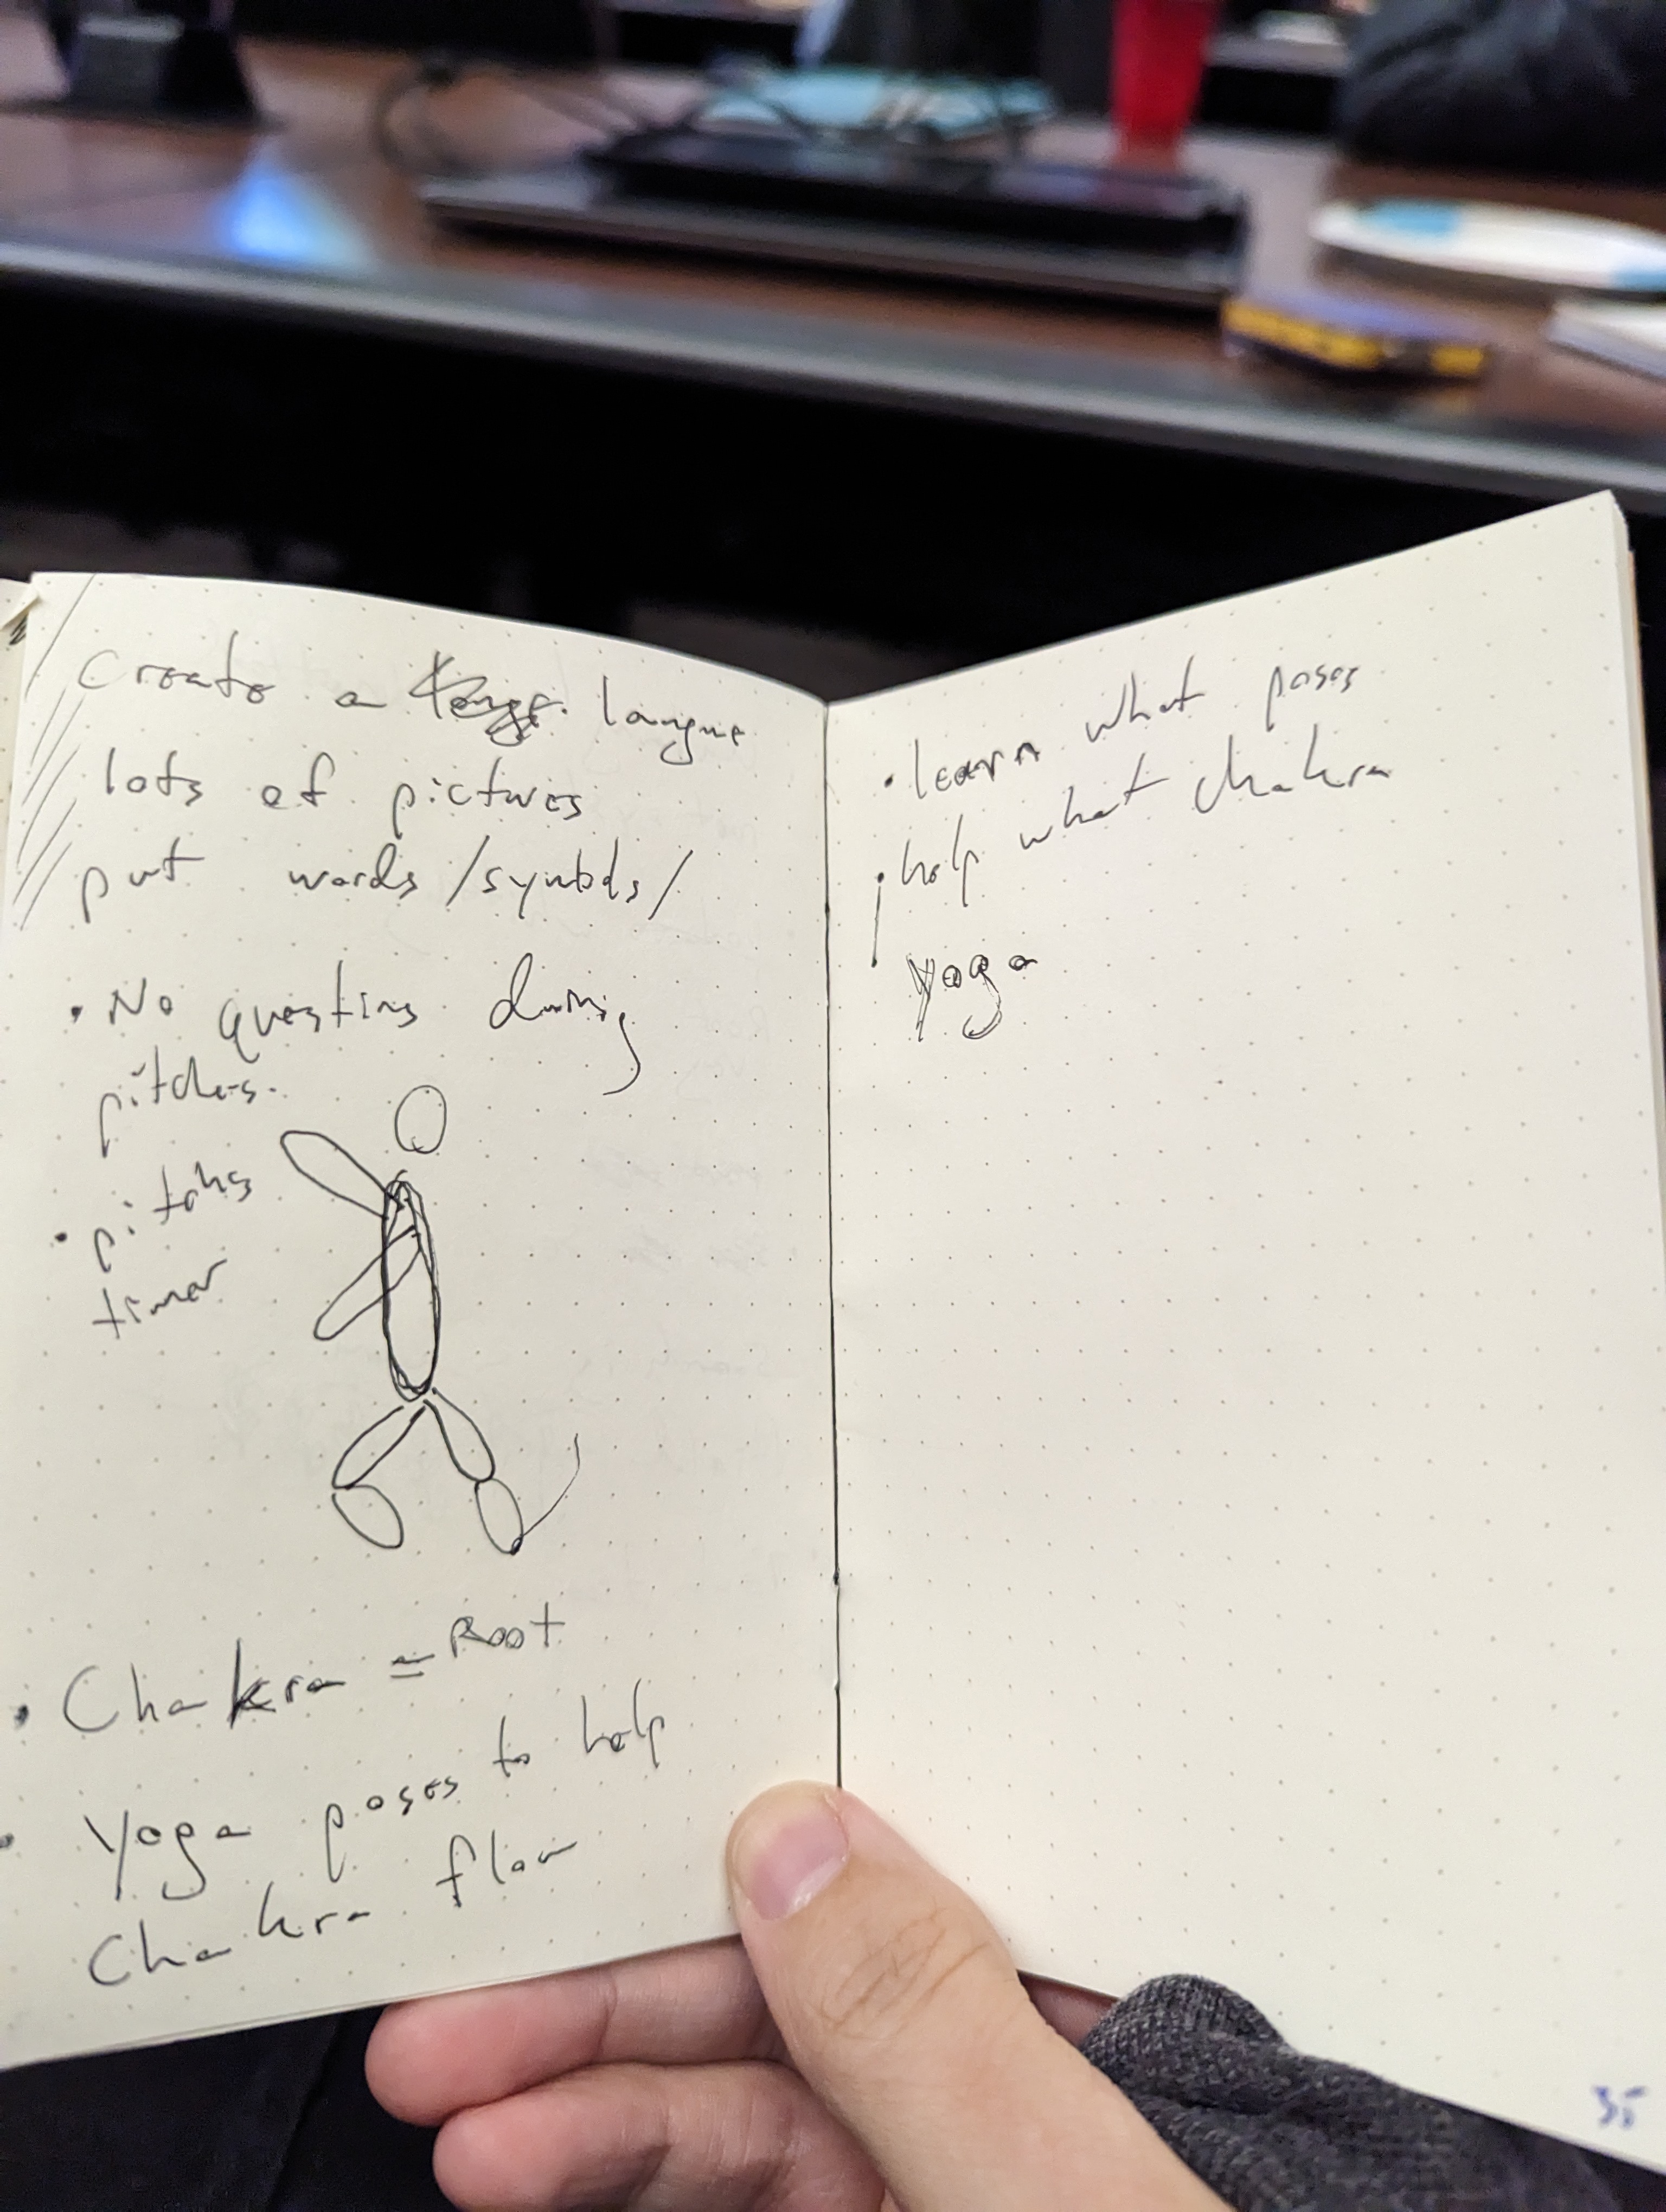 Create a langue
lots of pictures
put words/symbols/
• No questions during
pitches.
• pitches
timer
• Chakra = Root
• Yoga poses to help
Chakra flow
• learn what poses
help what chakra
Yoga
35